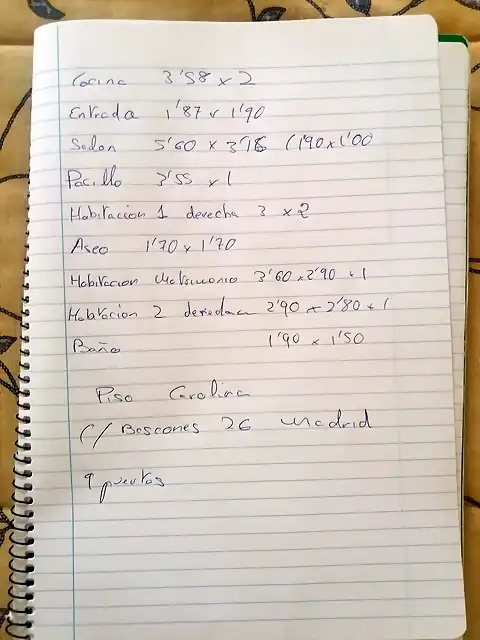 Cocina 3'58 x 2
Entrada 1'87 x 1'90
Salon 5'60 x 3'16 (1'90 x 1'00
Pasillo 3'55 x 1
Habitacion 1 derecha 3 x 2
Aseo 1'70 x 1'70
Habitacion Matrimonio 3'60 x 2'90 + 1
Habitacion 2 derecha 2'90 x 2'80 + 1
Baño 1'90 x 1'50
Piso Carolina
C/ Bascones 26 Madrid
9 puertas